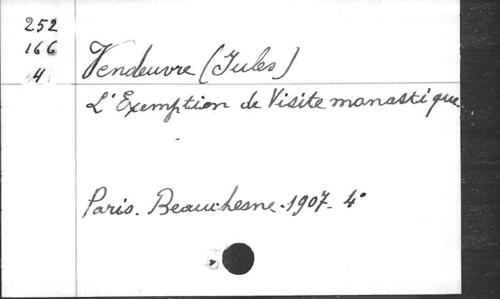 252
166
4
Vendeuvre (Jules)
L'Exemption de Visite monastique.
Paris. Beauchesne. 1907. 4°